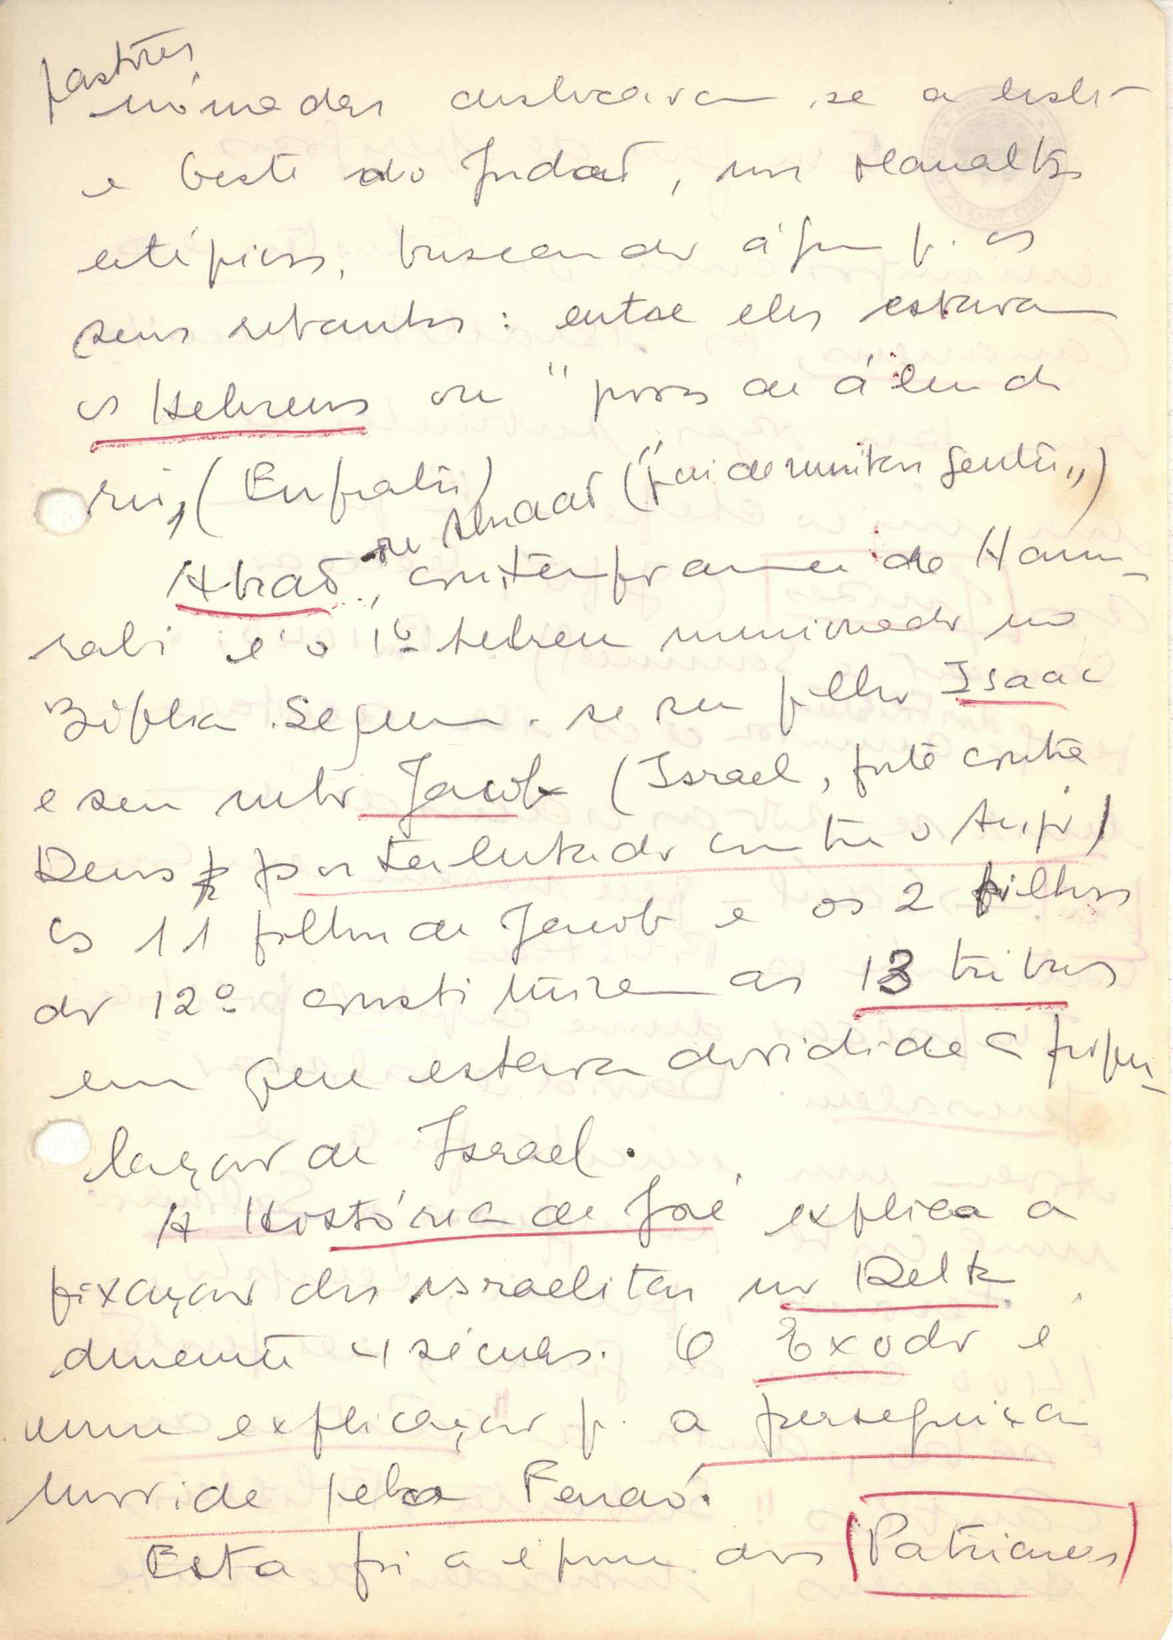 pastores
nómadas deslocavam-se a leste
e oeste do Jordão, nos planaltos
estépicos, buscando água p. os
seus rebanhos: entre eles estavam
os Hebreus ou "povos de além do
rio" (Eufrates)
Abrão ou Abraão ("pai de muitas gentes"), contemporaneo de Hamu-
rabi é o 1º hebreu mencionado na
Bíblia. Seguem-se seu filho Isaac
e seu neto Jacob (Israel, forte contra
Deus por ter lutado contra o Anjo)
Os 11 filhos de Jacob e os 2 filhos
do 12º constituiram as 13 tribus
em que estava dividida a popu-
laçao de Israel.
A História de José explica a
fixaçao dos israelitas no Delta
durante 4 séculos. O Exodo é
uma explicaçao p. a perseguiçao
movida pelo Faraó.
Esta foi a época dos Patriarcas